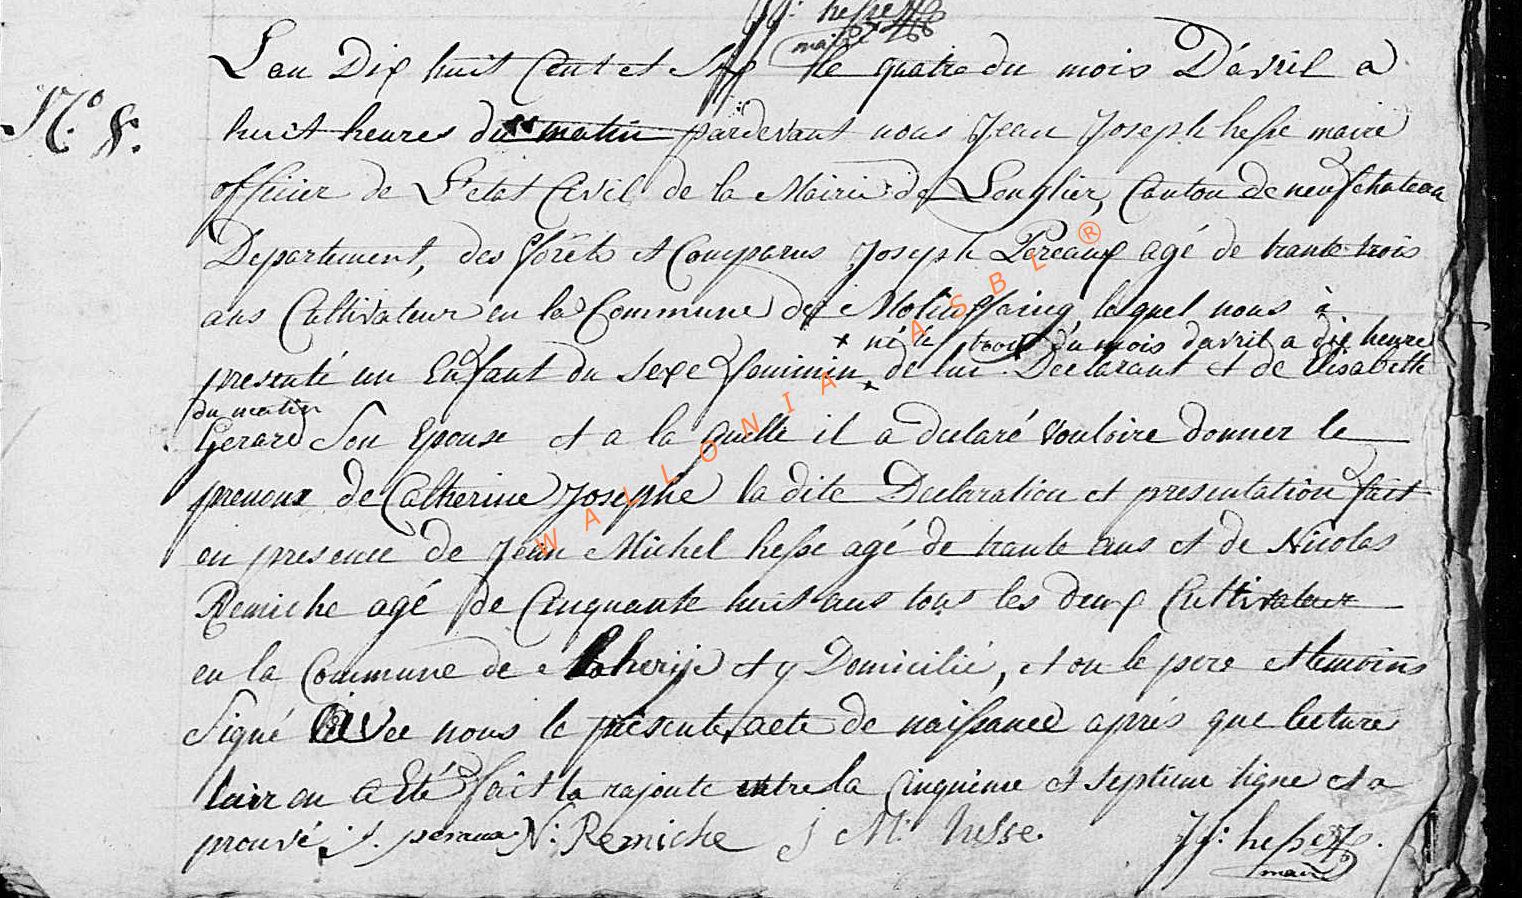 Jj: hesse
maire
L'an Dix huit Cent et Six le quatre du mois D'avril a
N.° 8.
huit heures du matin pardevant nous Jean Joseph hesse maire
officier de L'etat Civil de la Mairie de Longlier, Canton de neufchateau
Departement, des forêts et Comparus Joseph Pereaux agé de trante trois
ans Cultivateur en la Commune de Molinfaing lequel nous à
x né le trois du mois davril a dix heure
presenté un Enfant du Sexe feminin x de lui Declarant et de Elisabette
du matin
Gerard Son Epouse et a la quelle il a declaré vouloire donner le
prenoux de Catherine Josephe la dite Declaration et presentation fait
en presence de Jean Michel hesse agé de trante ans et de Nicolas
Remiche agé de Cinquante huit ans tous les deux Cultivateur
en la Commune de Laherie et y Domicilié, et on le pere et temoins
Signé avec nous le présente acte de naissance aprés que lecture
leur en a Eté fait la rajoute entre la Cinquieme et Septieme ligne et a
prouvé J. peraux N: Remiche J M: hesse. Jj: hesse
maire
WALLONIA ASBL ®